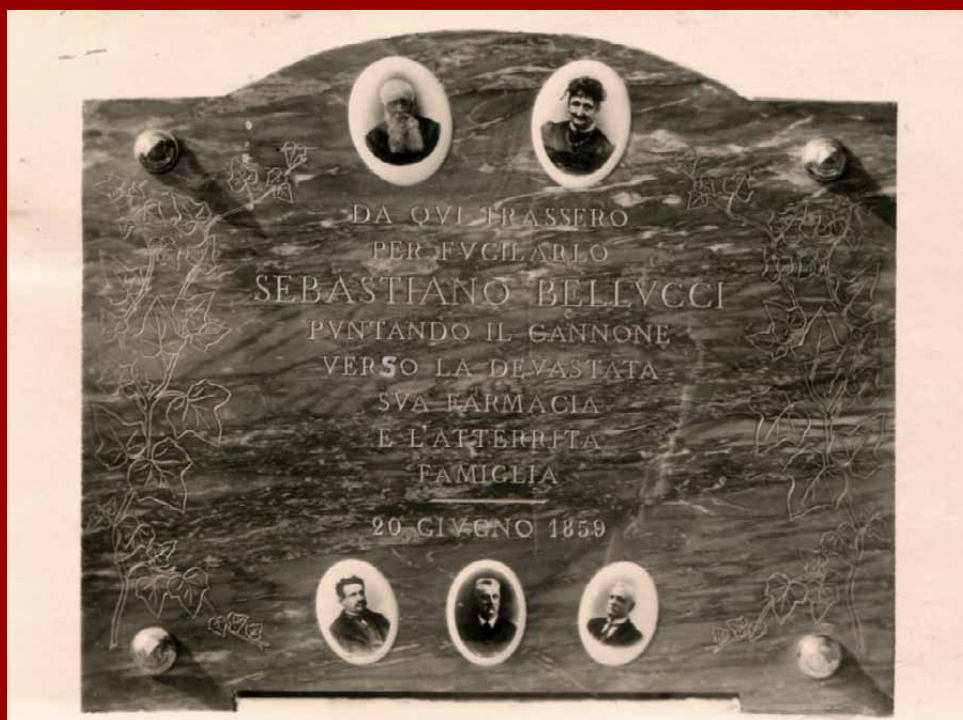 DA QVI TRASSERO
PER FVCILARLO
SEBASTIANO BELLVCCI
PVNTANDO IL CANNONE
VERSO LA DEVASTATA
SVA FARMACIA
E L'ATTERRITA
FAMIGLIA
20 GIVGNO 1859